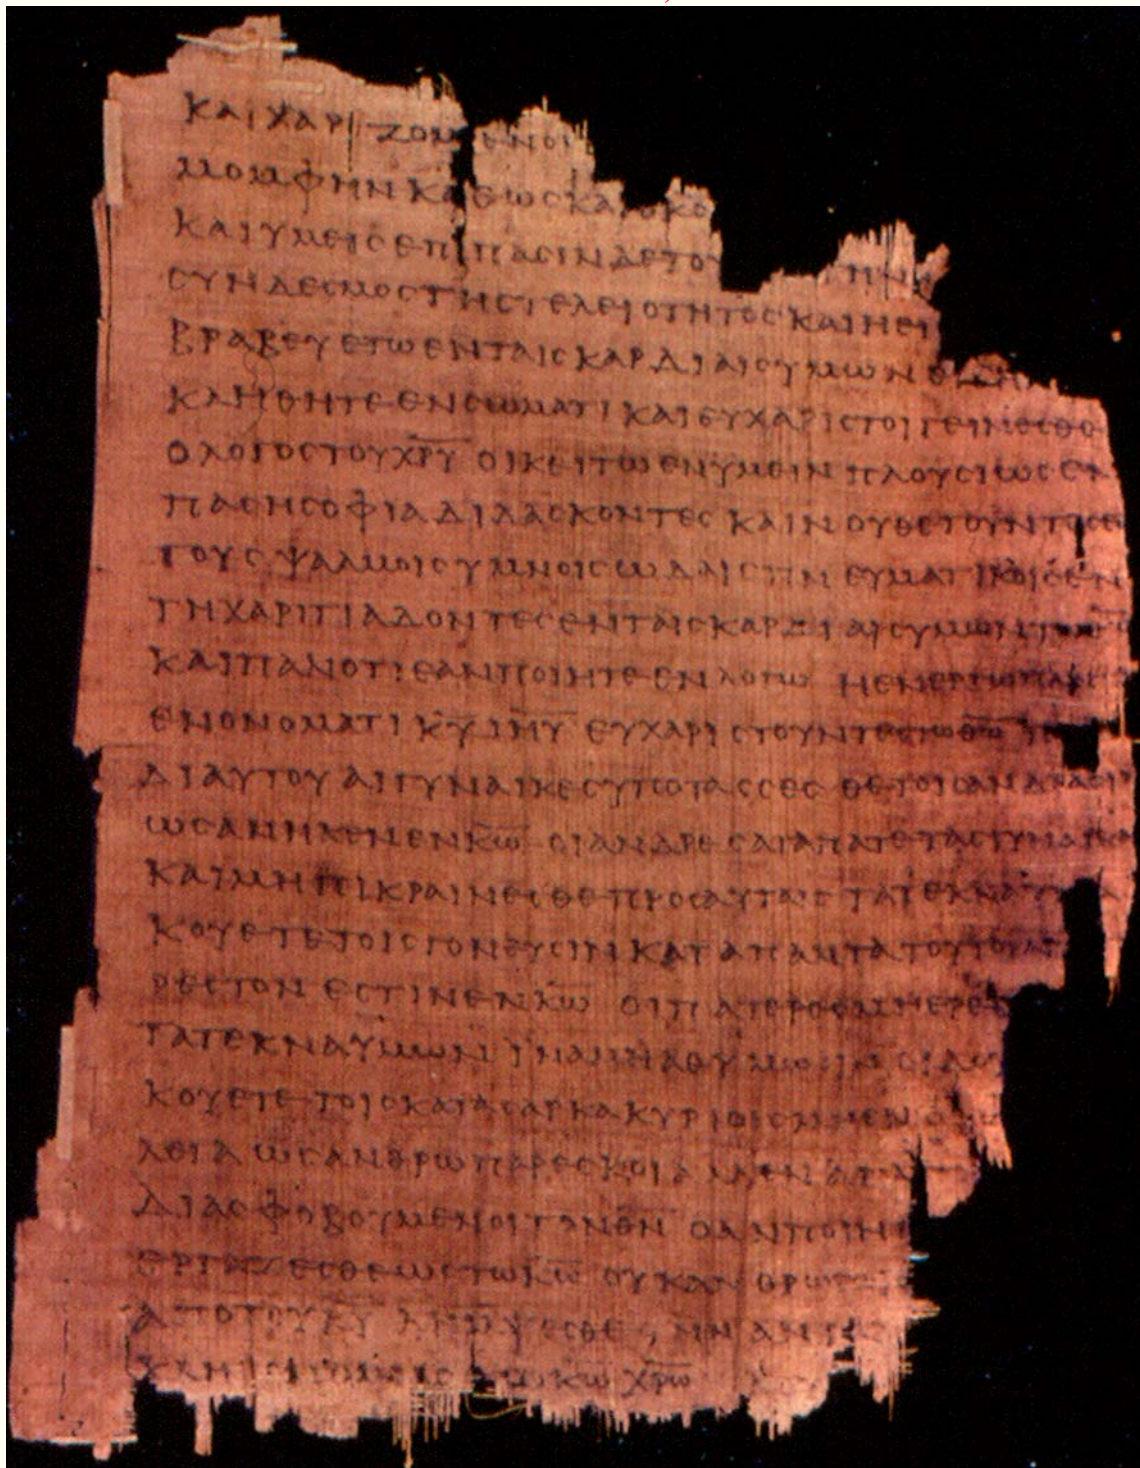 ΚΑΙ ΧΑΡΙΖΟΜΕΝΟΙ
ΜΟΜΦΗΝ ΚΑΘΩΣ ΚΑΙ Ο ΚΣ
ΚΑΙ ΥΜΕΙΣ ΕΠΙ ΠΑΣΙΝ ΔΕ ΤΟΥ ΗΝ
ΣΥΝΔΕΣΜΟΣ ΤΗΣ ΤΕΛΕΙΟΤΗΤΟΣ ΚΑΙ Η ΕΙ
ΒΡΑΒΕΥΕΤΩ ΕΝ ΤΑΙΣ ΚΑΡΔΙΑΙΣ ΥΜΩΝ
ΚΛΗΘΗΤΕ ΕΝ ΣΩΜΑΤΙ ΚΑΙ ΕΥΧΑΡΙΣΤΟΙ ΓΕΙΝΕΣΘΕ
Ο ΛΟΓΟΣ ΤΟΥ ΧΡΥ ΟΙΚΕΙΤΩ ΕΝ ΥΜΕΙΝ ΠΛΟΥΣΙΩΣ ΕΝ
ΠΑΣΗ ΣΟΦΙΑ ΔΙΔΑΣΚΟΝΤΕΣ ΚΑΙ ΝΟΥΘΕΤΟΥΝΤΕΣ Ε
ΤΟΥΣ ΨΑΛΜΟΙΣ ΥΜΝΟΙΣ ΩΔΑΙΣ ΠΝΕΥΜΑΤΙΚΟΙΣ ΕΝ
ΤΗ ΧΑΡΙΤΙ ΑΔΟΝΤΕΣ ΕΝ ΤΑΙΣ ΚΑΡΔΙΑΙΣ ΥΜΩΝ ΤΩ
ΚΑΙ ΠΑΝ ΟΤΙ ΕΑΝ ΠΟΙΗΤΕ ΕΝ ΛΟΓΩ Η ΕΝ ΕΡΓΩ ΠΑΝΤΑ
ΕΝ ΟΝΟΜΑΤΙ ΚΥ ΙΗΥ ΕΥΧΑΡΙΣΤΟΥΝΤΕΣ ΤΩ ΘΩ
ΔΙ ΑΥΤΟΥ ΑΙ ΓΥΝΑΙΚΕΣ ΥΠΟΤΑΣΣΕΣΘΕ ΤΟΙΣ ΑΝΔΡΑΣΙΝ
ΩΣ ΑΝΗΚΕΝ ΕΝ ΚΩ ΟΙ ΑΝΔΡΕΣ ΑΓΑΠΑΤΕ ΤΑΣ ΓΥΝΑΙΚΑ
ΚΑΙ ΜΗ ΠΙΚΡΑΙΝΕΣΘΕ ΠΡΟΣ ΑΥΤΑΣ ΤΑ ΤΕΚΝΑ Υ
ΚΟΥΕΤΕ ΤΟΙΣ ΓΟΝΕΥΣΙΝ ΚΑΤΑ ΠΑΝΤΑ ΤΟΥΤΟ ΓΑΡ
ΡΕΣΤΟΝ ΕΣΤΙΝ ΕΝ ΚΩ ΟΙ ΠΑΤΕΡΕΣ ΜΗ ΕΡΕ
ΤΑ ΤΕΚΝΑ ΥΜΩΝ ΙΝΑ ΜΗ ΑΘΥΜΩΣΙΝ ΟΙ ΔΟΥ
ΚΟΥΕΤΕ ΤΟΙΣ ΚΑΤΑ ΣΑΡΚΑ ΚΥΡΙΟΙΣ ΜΗ ΕΝ Ο
ΛΕΙΑ ΩΣ ΑΝΘΡΩΠΑΡΕΣΚΟΙ ΑΛΛ ΕΝ ΑΠΛ
ΔΙΑΣ ΦΟΒΟΥΜΕΝΟΙ ΤΟΝ ΘΝ Ο ΑΝ ΠΟΙΗ
ΕΡΓΑΖΕΣΘΕ ΩΣ ΤΩ ΚΩ ΟΥΚ ΑΝΘΡΩ
ΑΠΟ ΤΟΥ ΚΥ ΛΗΜΨΕΣΘΕ ΤΗΝ ΑΝΤ
ΚΛΗ ΤΩ ΚΩ ΧΡΩ